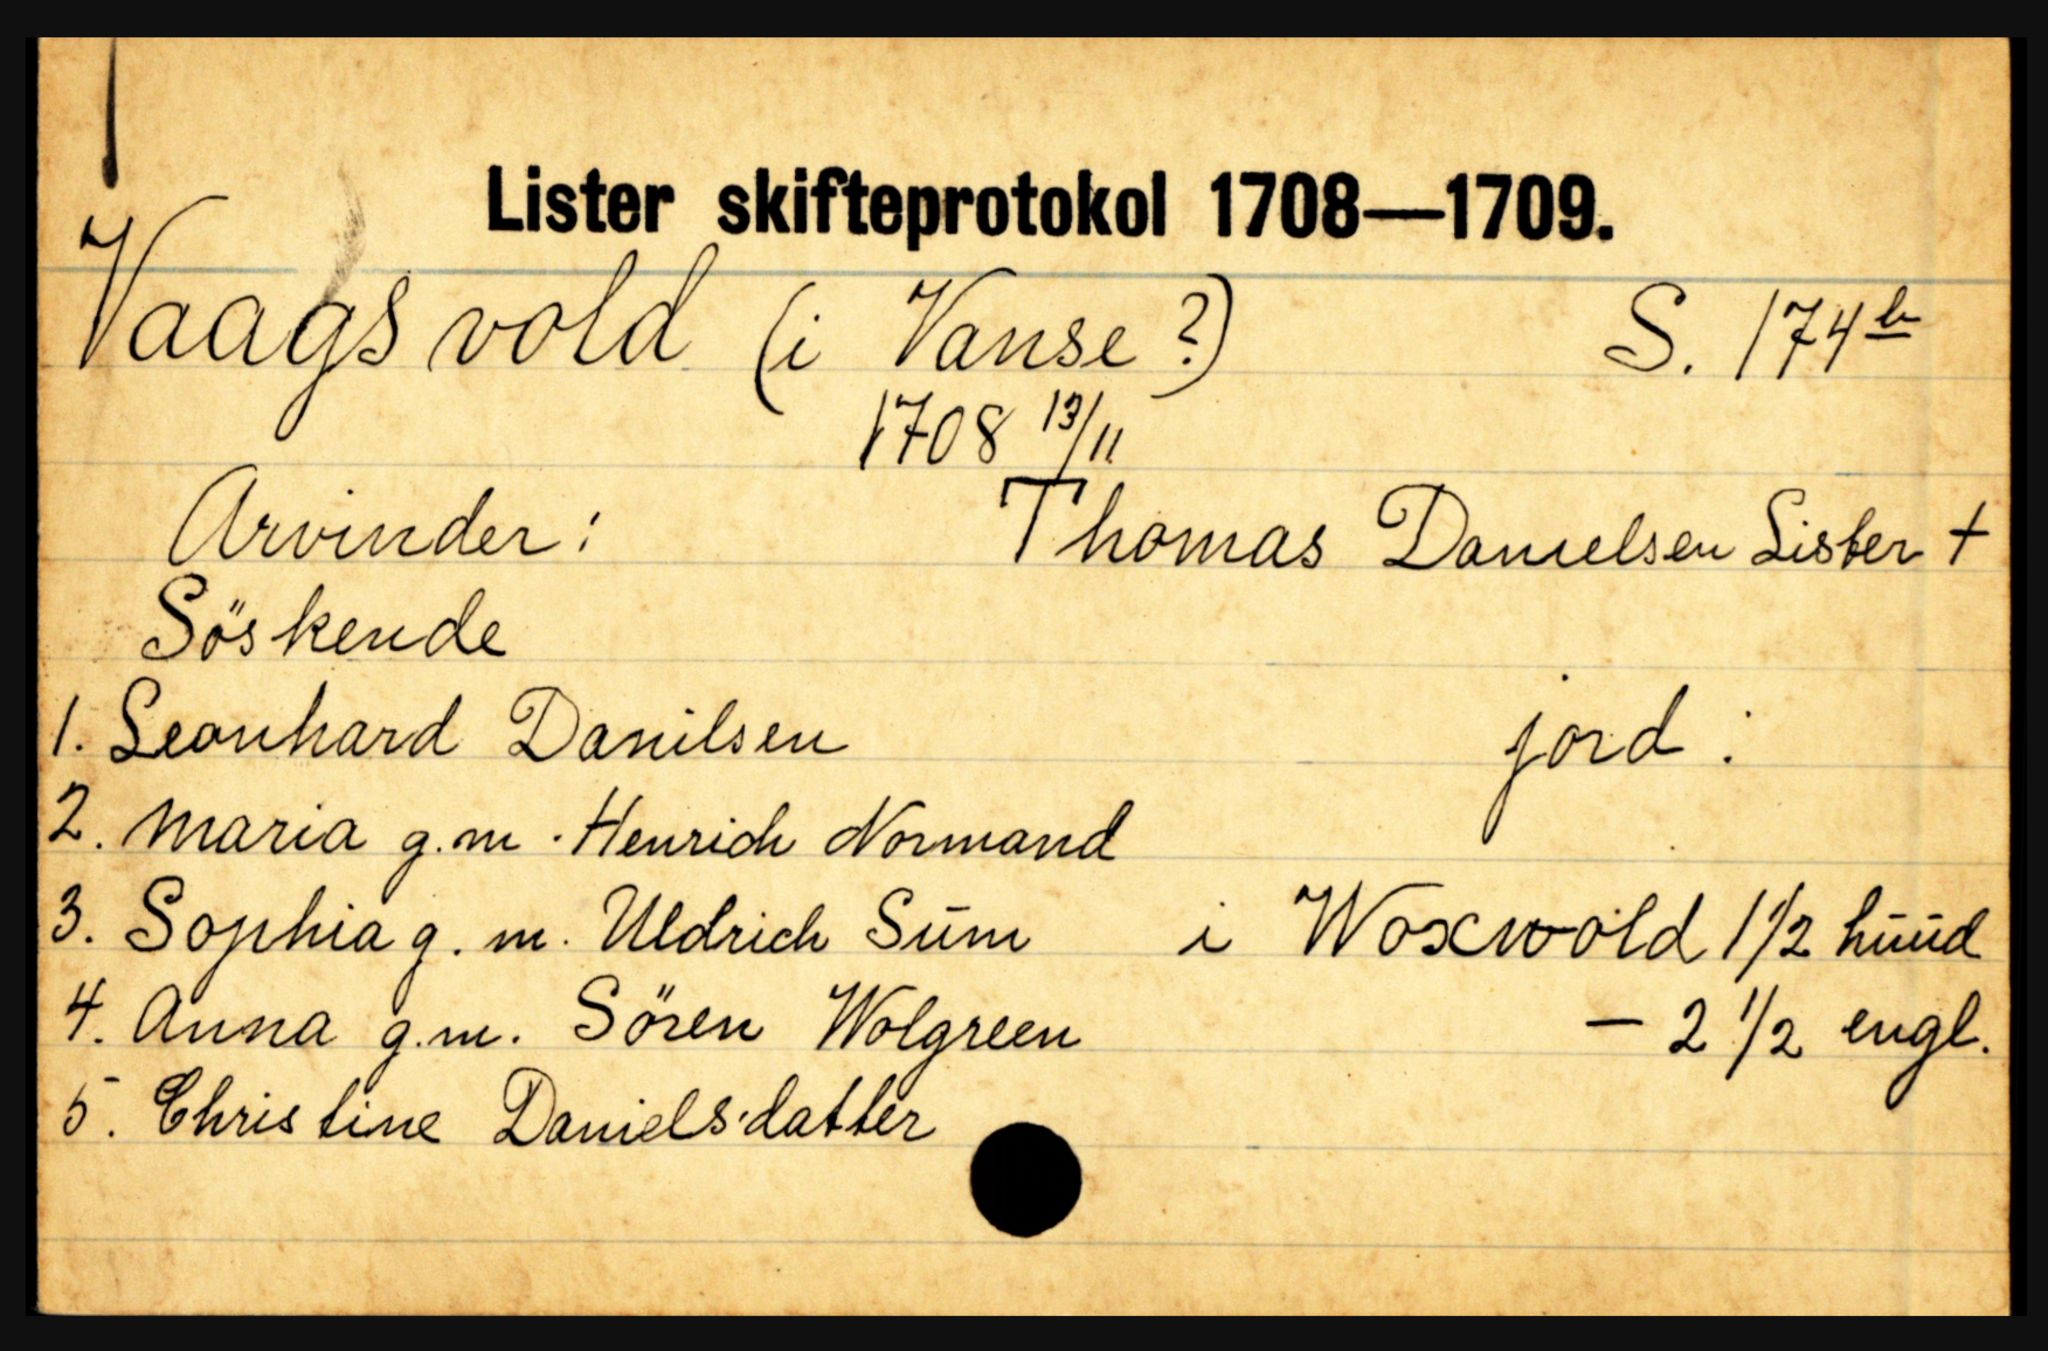 Lister skifteprotokol 1708—1709.
Vaagsvold (i Vanse?) S. 174b
1708 13/11
Arvinder: Thomas Danielsen Lister +
Söskende
1. Leonhard Danilsen jord:
2. Maria g.m. Henrich Normand
3. Sophia g.m. Uldrich Sūm i Woxwold 1 1/2 hūūd
4. Anna g.m. Sören Wolgreen — 2 1/2 engl.
5. Christine Danielsdatter